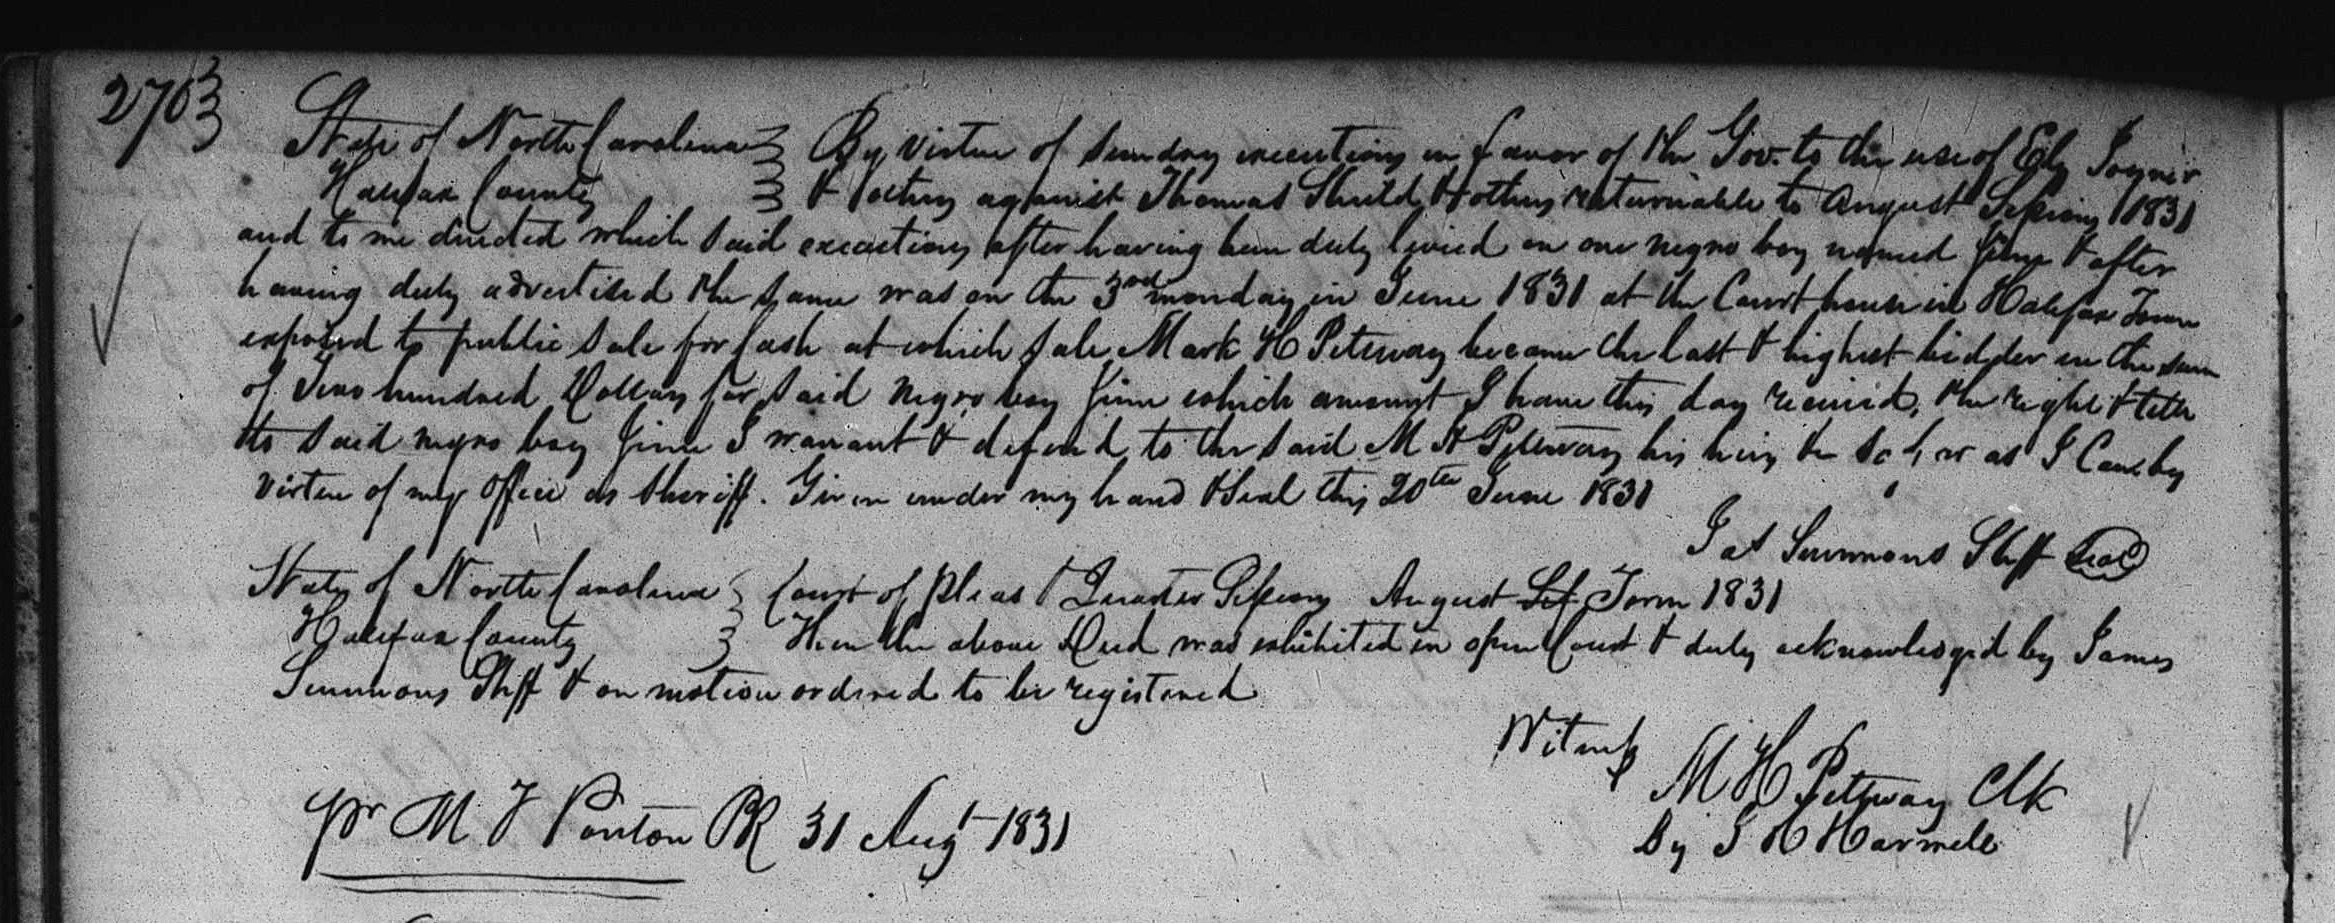 270
State of North Carolina } By virtue of sundry executions in favor of the Gov. to the use of Ely Joyner
Halifax County } & others against Thomas Shield & others returnable to August Session 1831
and to me directed which said executions after having been duly levied on one negro boy named Jim & after
having duly advertised the same was on the 3rd monday in June 1831 at the Court house in Halifax Town
exposed to public sale for Cash at which sale Mark H Petteway became the last & highest bidder in the sum
of Two hundred Dollars for said negro boy Jim which amount I have this day received, the right & title
to said negro boy Jim I warrant & defend to the said M H Petteway his heirs &c so far as I Can by
virtue of my office as sheriff. Given under my hand & seal this 20th June 1831
Jas Simmons Shff Seal
State of North Carolina } Court of pleas & Quarter Sessions August Term 1831
Halifax County } Then the above Deed was exhibited in open Court & duly acknowledged by James
Simmons Shff & on motion ordered to be registered
Witness
M H Petteway Clk
By J H Harwell
pr M T Ponton PR 31 Augt 1831